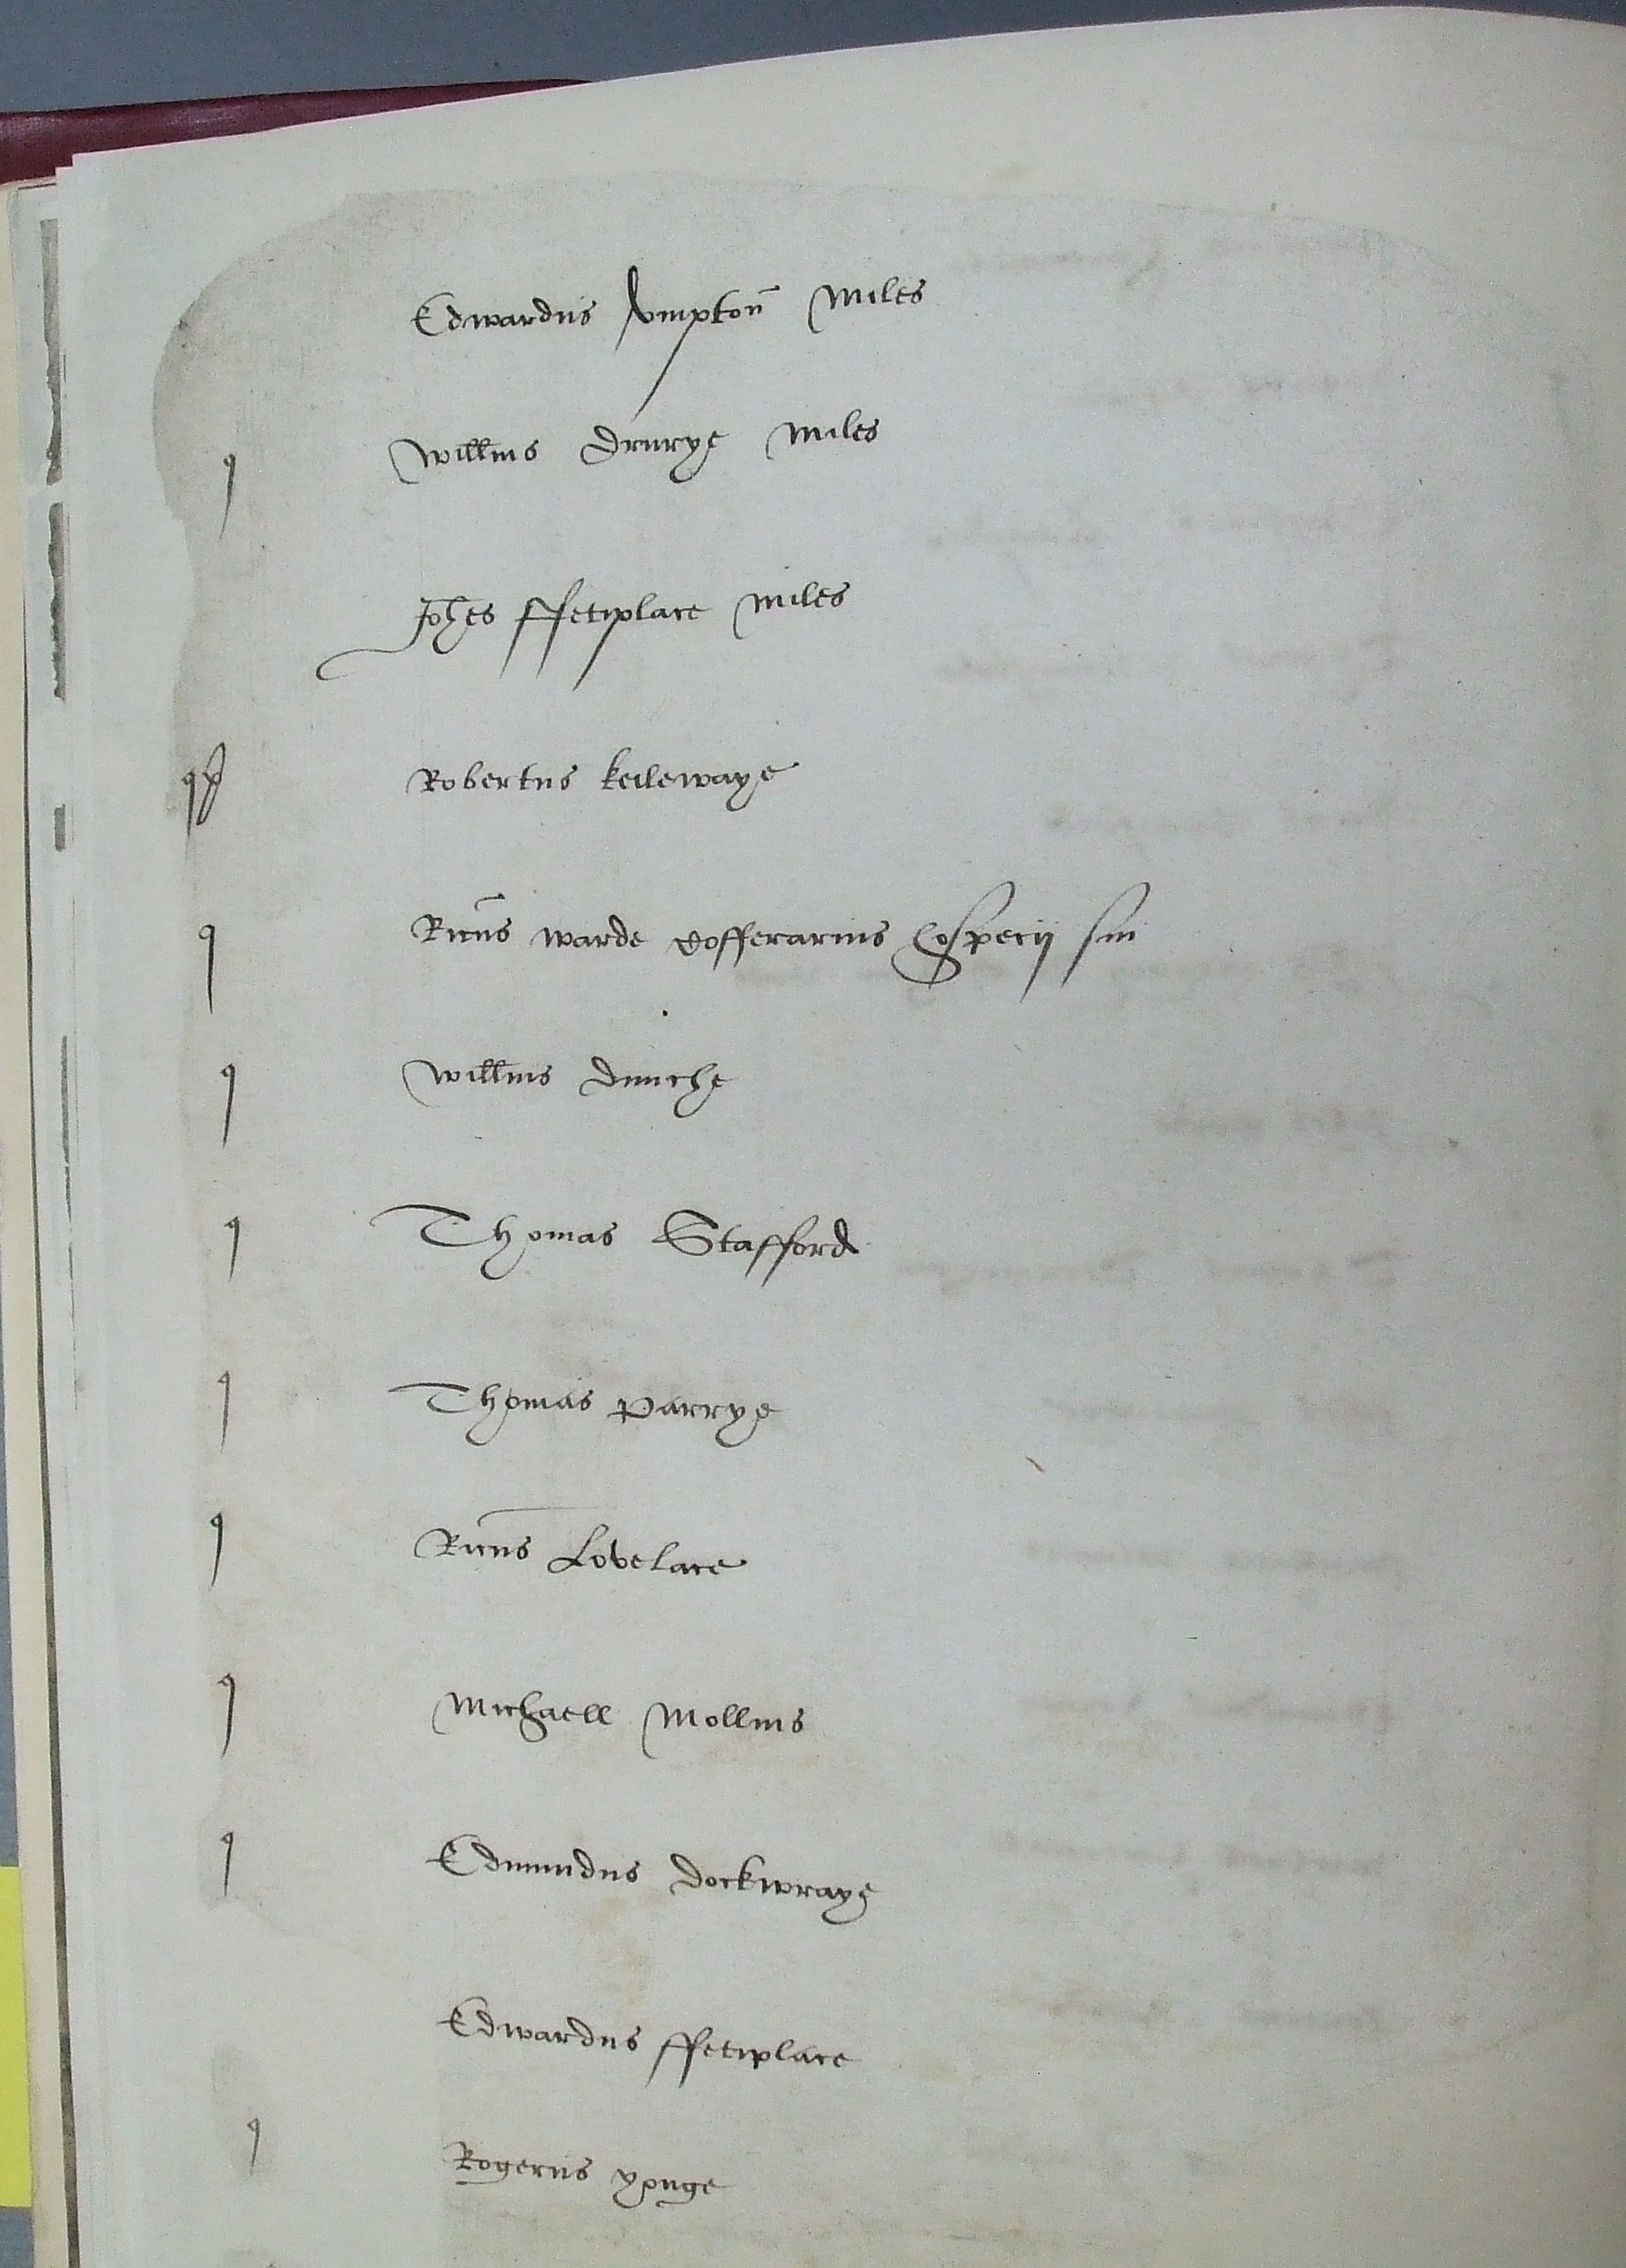 Edwardus Umpton̄ Miles
q Will̄ms Drurye Miles
Joh̄es ffetiplace Miles
q p Robertus keilewaye
q Ric̄us Warde Cofferarius hospecij sui
q Will̄ms Dunche
q Thomas Stafford
q Thomas Parrye
q Ric̄us Lovelace
q Michaell Mollins
q Edmundus Dockwraye
Edwardus ffetiplace
q Rogerus yonge